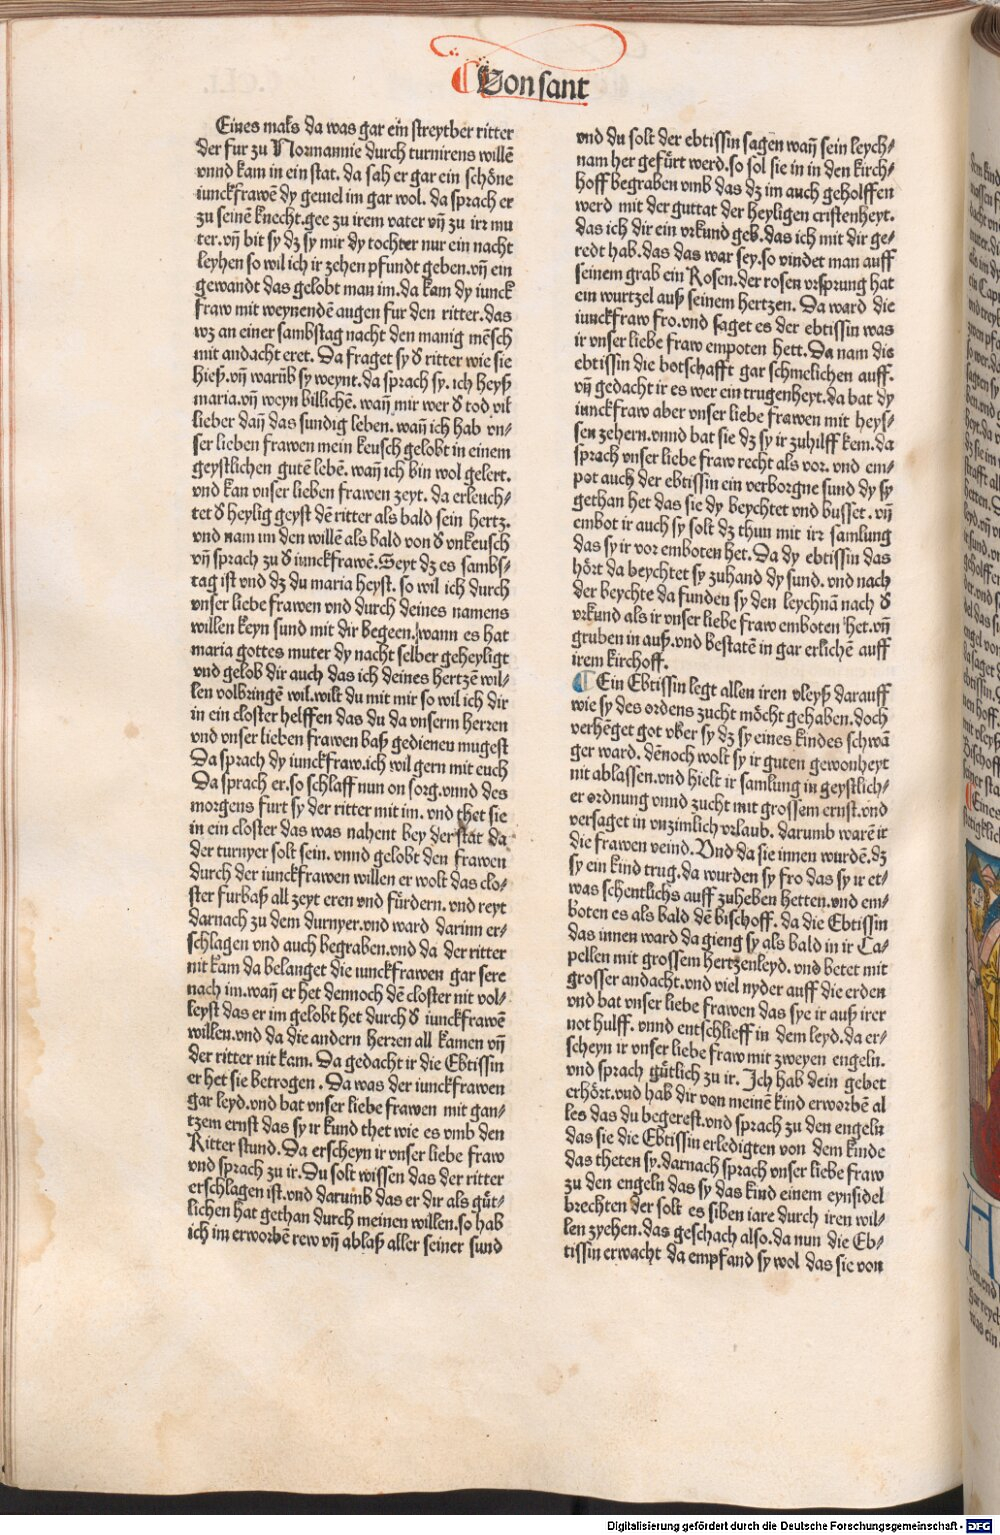 Von sant
Eines mals da was gar ein streytber ritter
der fur zu Normannie durch turnirens willē
vnnd kam in ein stat. da sah er gar ein schöne
iunckfrawē dy geuiel im gar wol. da sprach er
zu seinē knecht. gee zu irem vater vn̄ zu irr mu
ter. vn̄ bit sy dz sy mir dy tochter nur ein nacht
leyhen so wil ich ir zehen pfundt geben. vn̄ ein
gewandt das gelobt man im. da kam dy iunck
fraw mit weynendē augen fur den ritter. das
wz an einer sambstag nacht den manig mēsch
mit andacht eret. Da fraget sy ď ritter wie sie
hieß. vn̄ warūb sy weynt. da sprach sy. ich heyß
maria. vn̄ weyn billichē. wan̄ mir wer ď tod vil
lieber dan̄ das sundig leben. wan̄ ich hab vn-
ser lieben frawen mein keusch gelobt in einem
geystlichen gutē lebē. wan̄ ich bin wol gelert.
vnd kan vnser lieben frawen zeyt. da erleuch-
tet ď heylig geyst dē ritter als bald sein hertz.
vnd nam im den willē als bald von ď vnkeusch
vn̄ sprach zu ď iunckfrawē. Seyt dz es sambs-
tag ist vnd dz du maria heyst. so wil ich durch
vnser liebe frawen vnd durch deines namens
willen keyn sund mit dir begeen. wann es hat
maria gottes muter dy nacht selber geheyligt
vnd gelob dir auch das ich deines hertzē wil-
len volbringē wil. wilt du mit mir so wil ich dir
in ein closter helffen das du da vnserm herren
vnd vnser lieben frawen baß gedienen mugest
Da sprach dy iunckfraw. ich wil gern mit euch
Da sprach er. so schlaff nun on sorg. vnnd des
morgens furt sy der ritter mit im. vnd thet sie
in ein closter das was nahent bey der stat da
der turnyer solt sein. vnnd gelobt den frawen
durch der iunckfrawen willen er wolt das clo-
ster furbaß all zeyt eren vnd fürdern. vnd reyt
darnach zu dem durnyer. vnd ward darinn er-
schlagen vnd auch begraben. vnd da der ritter
nit kam da belanget die iunckfrawen gar sere
nach im. wan̄ er het dennoch dē closter nit vol-
leyst das er im gelobt het durch ď iunckfrawē
willen. vnd da die andern herren all kamen vn̄
der ritter nit kam. Da gedacht ir die Ebtissin
er het sie betrogen. Da was der iunckfrawen
gar leyd. vnd bat vnser liebe frawen mit gan-
tzem ernst das sy ir kund thet wie es vmb den
Ritter stund. Da erscheyn ir vnser liebe fraw
vnd sprach zu ir. Du solt wissen das der ritter
erschlagen ist. vnd darumb das er dir als güt-
lichen hat gethan durch meinen willen. so hab
ich im erworbē rew vn̄ ablaß aller seiner sund
vnd du solt der ebtissin sagen wan̄ sein leych-
nam her gefürt werd. so sol sie in in den kirch-
hoff begraben vmb das dz im auch geholffen
werd mit der guttat der heyligen cristenheyt.
das ich dir ein vrkund geb. das ich mit dir ge-
redt hab. das das war sey. so vindet man auff
seinem grab ein Rosen. der rosen vrsprung hat
ein wurtzel auß seinem hertzen. Da ward die
iunckfraw fro. vnd saget es der ebtissin was
ir vnser liebe fraw empoten hett. Da nam die
ebtissin die botschafft gar schmelichen auff.
vn̄ gedacht ir es wer ein trugenheyt. da bat dy
iunckfraw aber vnser liebe frawen mit heys-
sen zehern. vnnd bat sie dz sy ir zuhilff kem. da
sprach vnser liebe fraw recht als vor. vnd em-
pot auch der ebtissin ein verborgne sund dy sy
gethan het das sie dy beychtet vnd busset. vn̄
embot ir auch sy solt dz thun mit irr samlung
das sy ir vor emboten het. Da dy ebtissin das
hört da beychtet sy zuhand dy sund. vnd nach
der beychte da funden sy den leychnā nach ď
vrkund als ir vnser liebe fraw emboten het. vn̄
gruben in auß. vnd bestatē in gar erlichē auff
irem kirchoff.
Ein Ebtissin legt allen iren vleyß darauff
wie sy des ordens zucht möcht gehaben. doch
verhēget got vber sy dz sy eines kindes schwā
ger ward. dēnoch wolt sy ir guten gewonheyt
nit ablassen. vnd hielt ir samlung in geystlich-
er ordnung vnnd zucht mit grossem ernst. vnd
versaget in vnzimlich vrlaub. darumb warē ir
die frawen veind. Vnd da sie innen wurdē. dz
sy ein kind trug. da wurden sy fro das sy ir et-
was schentlichs auff zuheben hetten. vnd em-
boten es als bald dē bischoff. da die Ebtissin
das innen ward da gieng sy als bald in ir Ca-
pellen mit grossem hertzenleyd. vnd betet mit
grosser andacht. vnd viel nyder auff die erden
vnd bat vnser liebe frawen das sye ir auß irer
not hulff. vnnd entschlieff in dem leyd. da er-
scheyn ir vnser liebe fraw mit zweyen engeln.
vnd sprach gütlich zu ir. Ich hab dein gebet
erhört. vnd hab dir von meinē kind erworbē al
les das du begerest. vnd sprach zu den engeln
das sie die Ebtissin erledigten von dem kinde
das theten sy. darnach sprach vnser liebe fraw
zu den engeln das sy das kind einem eynsidel
brechten der solt es siben iare durch iren wil-
len zyehen. das geschach also. da nun die Eb-
tissin erwacht da empfand sy wol das sie von
Digitalisierung gefördert durch die Deutsche Forschungsgemeinschaft - DFG